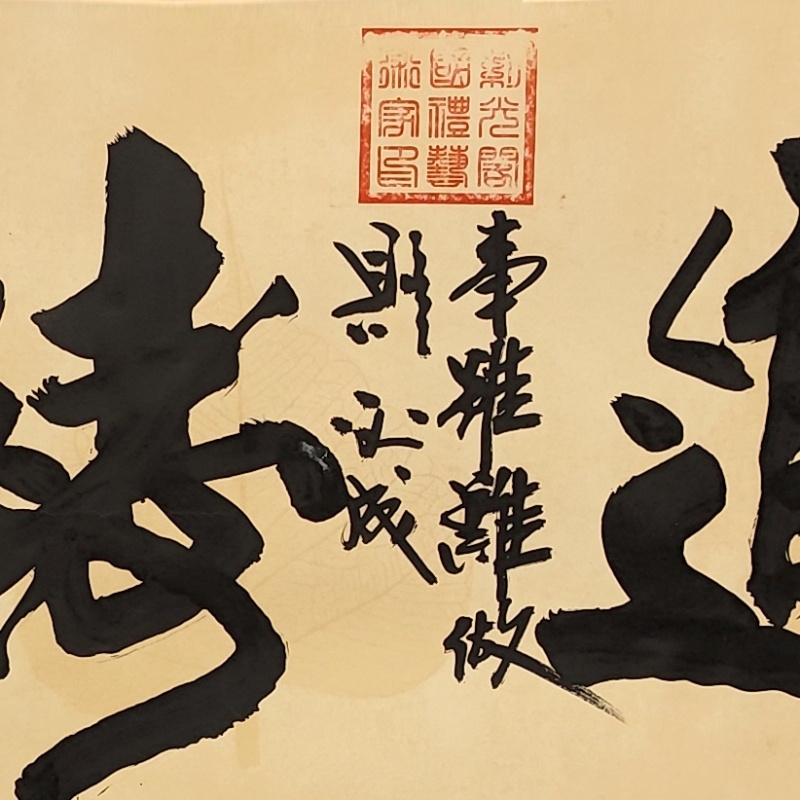 紫光閣
國禮藝
術家印
事雖難做
則必成